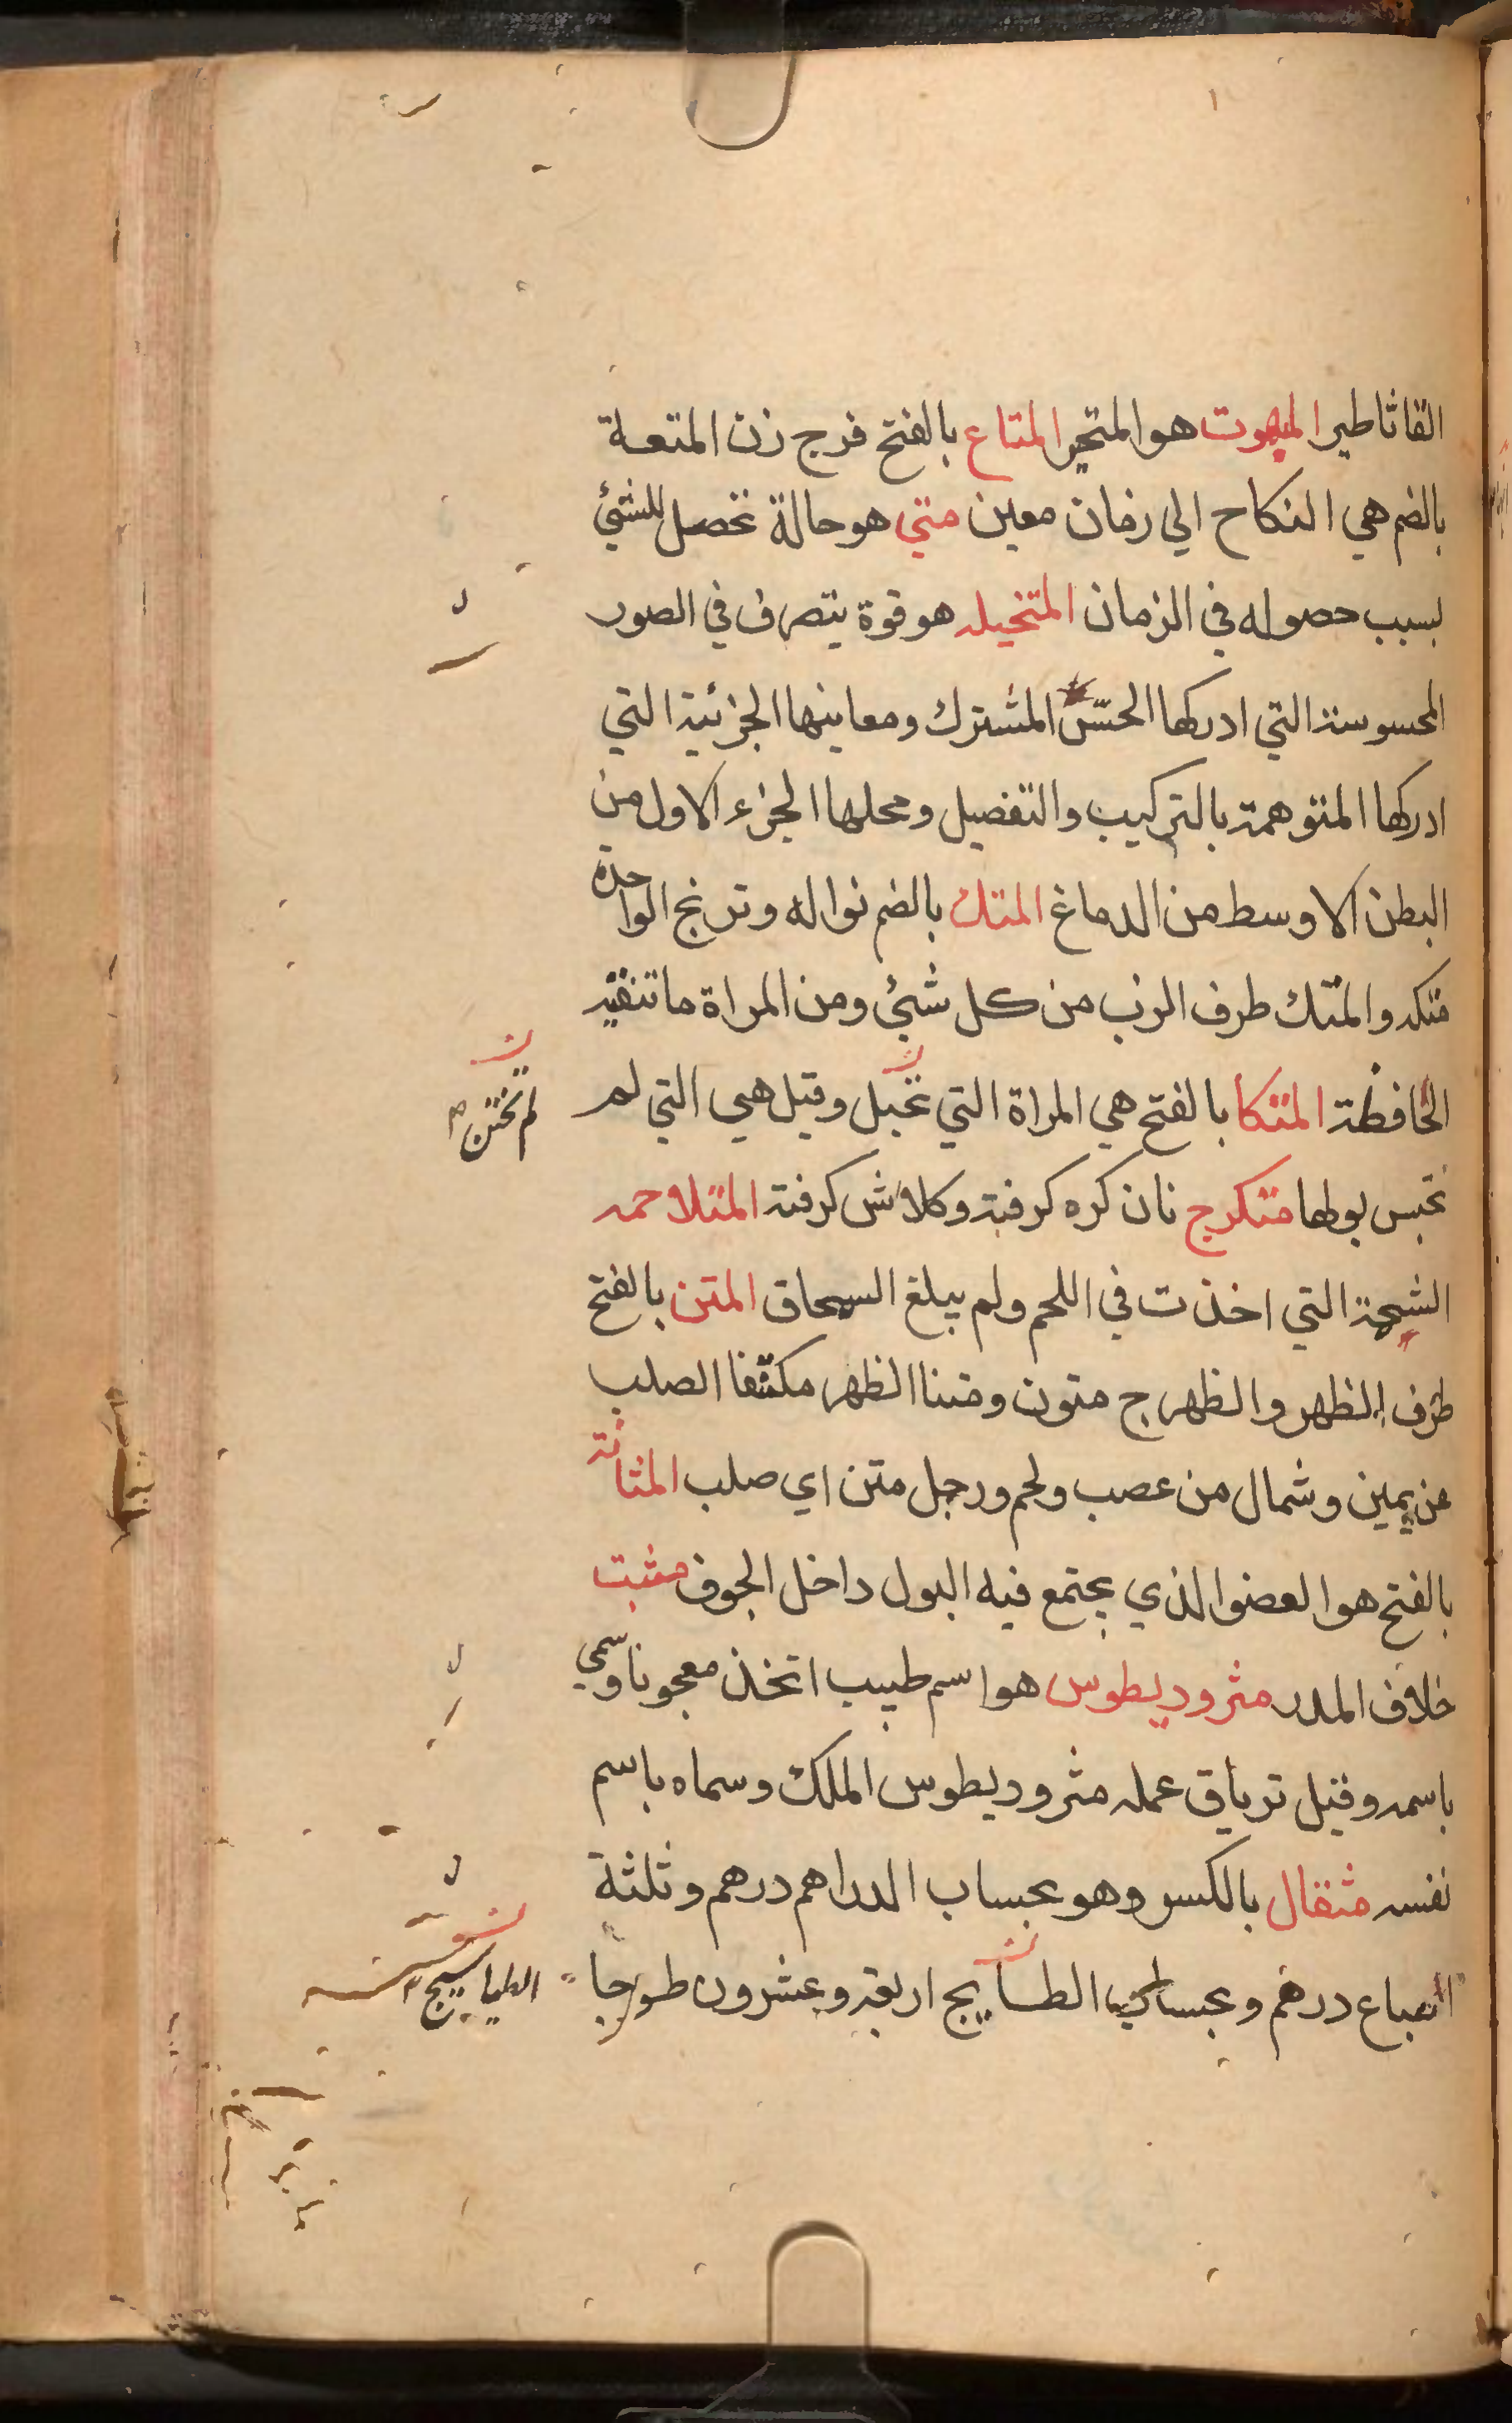 القاثاطير المبهوت هو المتحير المتاع بالفتح فرج زن المتعة
بالضم هي النكاح الي زمان معين متي هو حالة تحصل للشئ
بسبب حصوله في الزمان المتخيله هو قوة يتصرف في الصور
المحسوسة التي ادركها الحسّ المشترك ومعاينها الجزئية التي
ادركها المتوهمة بالتركيب والتفصيل ومحلها الجزء الاول من
البطن الاوسط من الدماغ المتك بالضم نواله وترنج الواحدة
متكه والمتك طرف الزب من كل شئ ومن المراة ما تنقيه
الخافظة المتكا بالفتح هي المراة التي تحبل وقيل هي التي لم
لم تختن
تحبس بولها متكرج نان كره كرفته وكلاش كرفته المتلاحمه
الشجة التي اخذت في اللحم ولم يبلغ السحاق المتن بالفتح
طرف الظهر والظهر ج متون ومتنا الظهر مكتنفا الصلب
عن يمين وشمال من عصب ولحم ورجل متن اي صلب المثانة
بالفتح هو العضو الذي يجتمع فيه البول داخل الجوف مثبت
خلاف المدر مثروديطوس هو اسم طبيب اتخذ معجونا وسمي
باسمه وقيل ترياق عمله مثروديطوس الملك وسماه باسم
نفسه مثقال بالكسر وهو بحساب الدراهم درهم وثلثة
اسباع درهم وبحساب الطسايج اربعة وعشرون طسوجا
الطياسيج